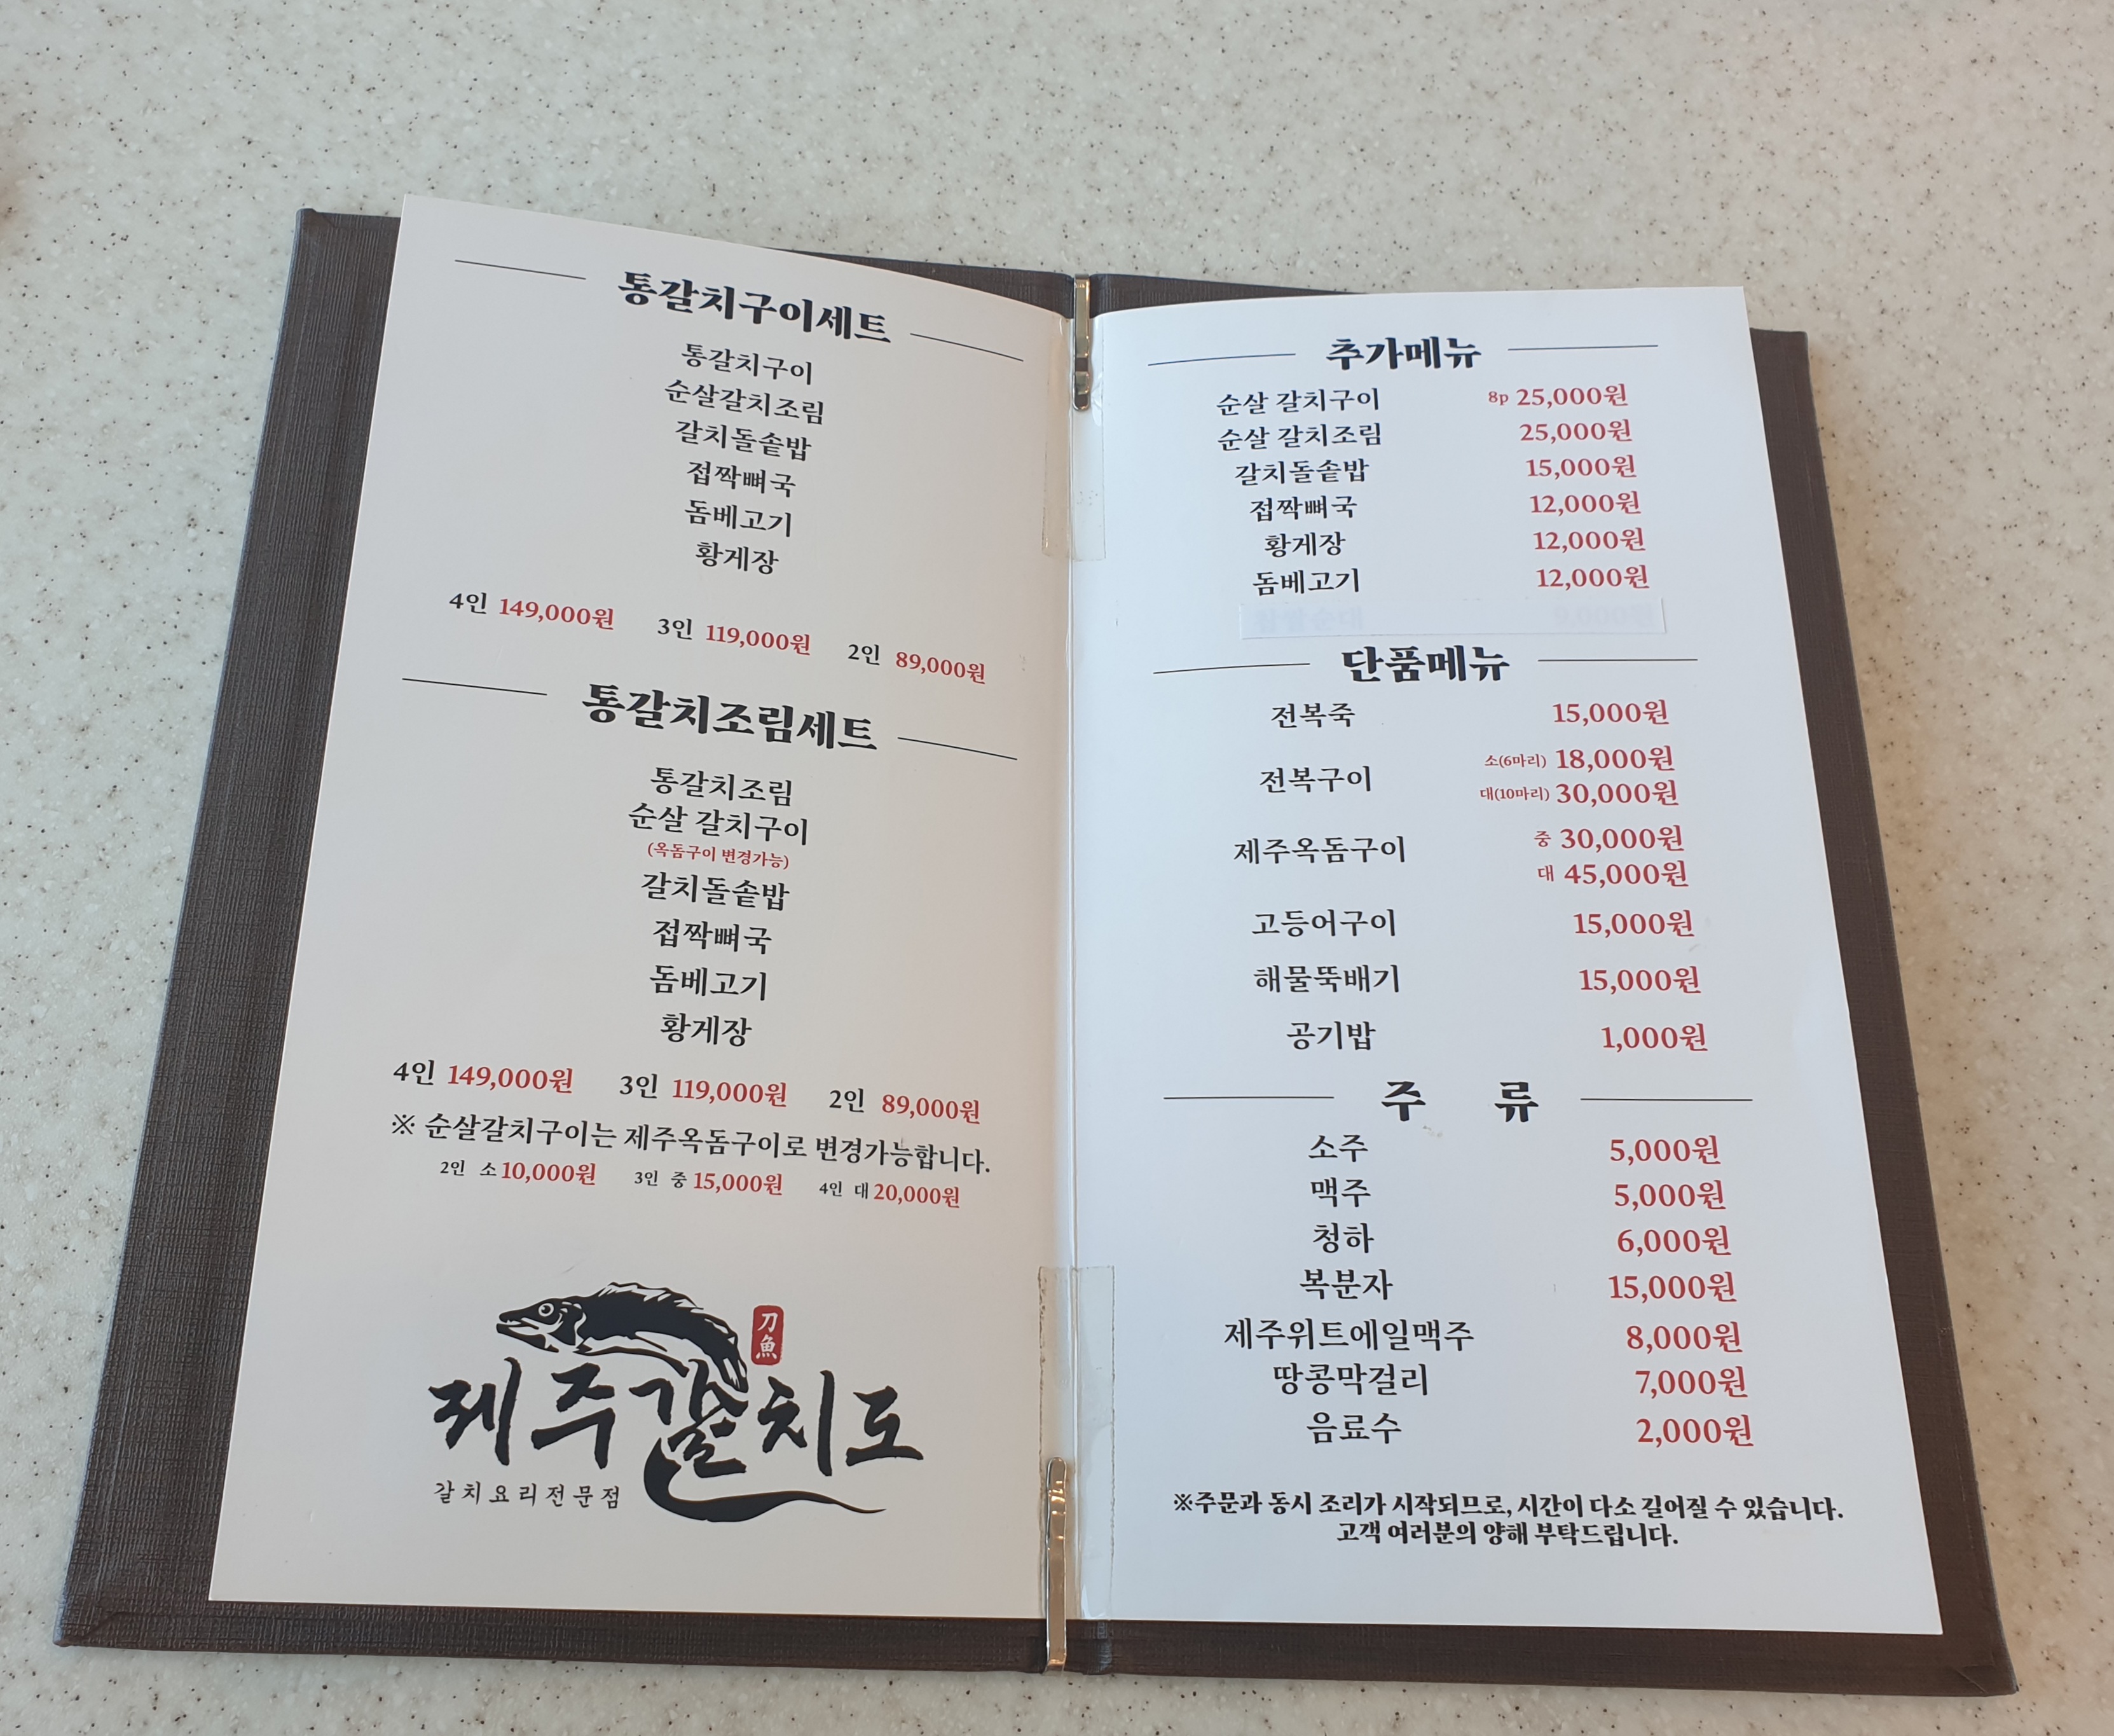 통갈치구이세트
통갈치구이
순살갈치조림
갈치돌솥밥
접짝뼈국
돔베고기
황게장
4인 149,000원 3인 119,000원 2인 89,000원
통갈치조림세트
통갈치조림
순살 갈치구이
(옥돔구이 변경가능)
갈치돌솥밥
접짝뼈국
돔베고기
황게장
4인 149,000원 3인 119,000원 2인 89,000원
※ 순살갈치구이는 제주옥돔구이로 변경가능합니다.
2인 소 10,000원 3인 중 15,000원 4인 대 20,000원
刀魚
제주갈치도
갈치요리전문점
추가메뉴
순살 갈치구이 8p 25,000원
순살 갈치조림 25,000원
갈치돌솥밥 15,000원
접짝뼈국 12,000원
황게장 12,000원
돔베고기 12,000원
단품메뉴
전복죽 15,000원
전복구이 소(6마리) 18,000원
대(10마리) 30,000원
제주옥돔구이 중 30,000원
대 45,000원
고등어구이 15,000원
해물뚝배기 15,000원
공기밥 1,000원
주 류
소주 5,000원
맥주 5,000원
청하 6,000원
복분자 15,000원
제주위트에일맥주 8,000원
땅콩막걸리 7,000원
음료수 2,000원
※주문과 동시 조리가 시작되므로, 시간이 다소 길어질 수 있습니다.
고객 여러분의 양해 부탁드립니다.